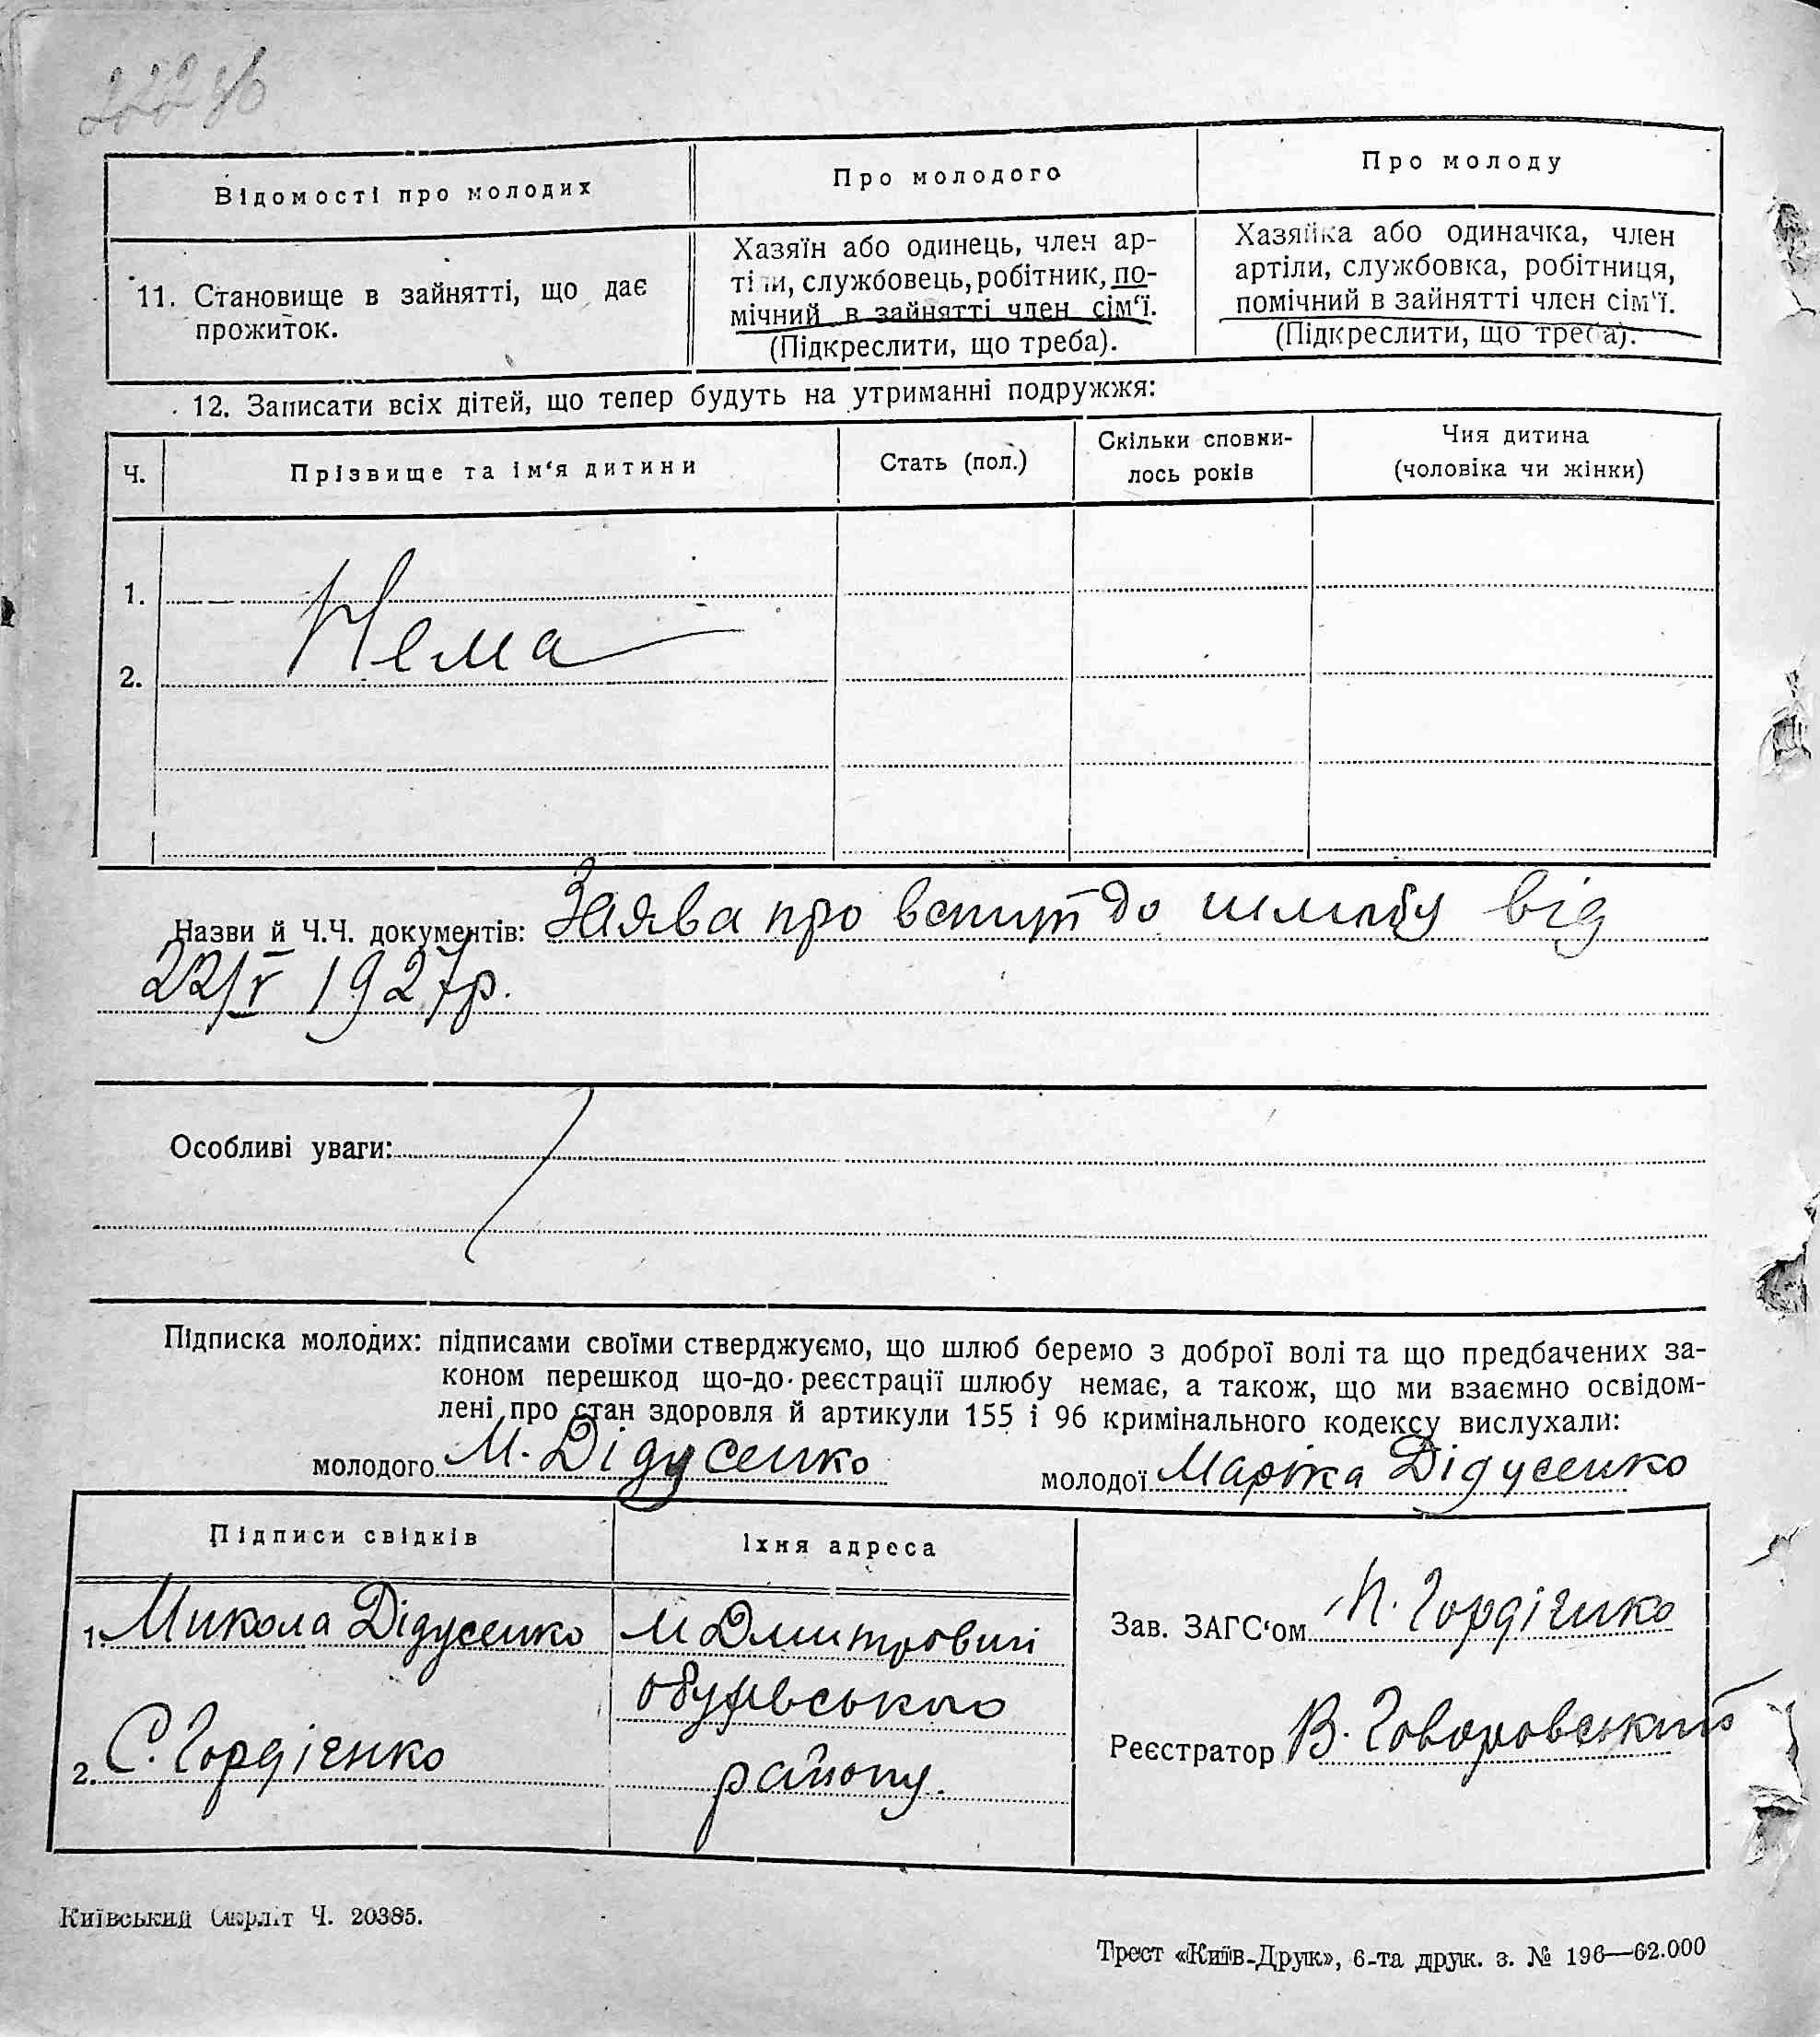 222 зв
Відомості про молодих
Про молодого
Про молоду
11. Становище в зайнятті, що дає
прожиток.
Хазяїн або одинець, член ар-
тіли, службовець, робітник, по-
мічний в зайнятті член сім'ї.
(Підкреслити, що треба).
Хазяйка або одиначка, член
артіли, службовка, робітниця,
помічний в зайнятті член сім'ї.
(Підкреслити, що треба).
12. Записати всіх дітей, що тепер будуть на утриманні подружжя:
Ч.
Прізвище та ім'я дитини
Стать (пол.)
Скільки сповни-
лось років
Чия дитина
(чоловіка чи жінки)
1.
Нема
2.
Назви й Ч.Ч. документів: Заява про вступ до шлюбу від
22/V 1927р.
Особливі уваги:
Підписка молодих: підписами своїми стверджуємо, що шлюб беремо з доброї волі та що предбачених за-
коном перешкод що-до реєстрації шлюбу немає, а також, що ми взаємно освідом-
лені про стан здоровля й артикули 155 і 96 кримінального кодексу вислухали:
молодого М. Дідусенко
молодої Маріка Дідусенко
Підписи свідків
Їхня адреса
1. Микола Дідусенко
М Дмитровки
обухівського
району.
2. С. Гордієнко
Зав. ЗАГС'ом П. Гордієнко
Реєстратор В. Говоровський
Київський Окрліт Ч. 20385.
Трест «Київ-Друк», 6-та друк. з. № 196—62.000